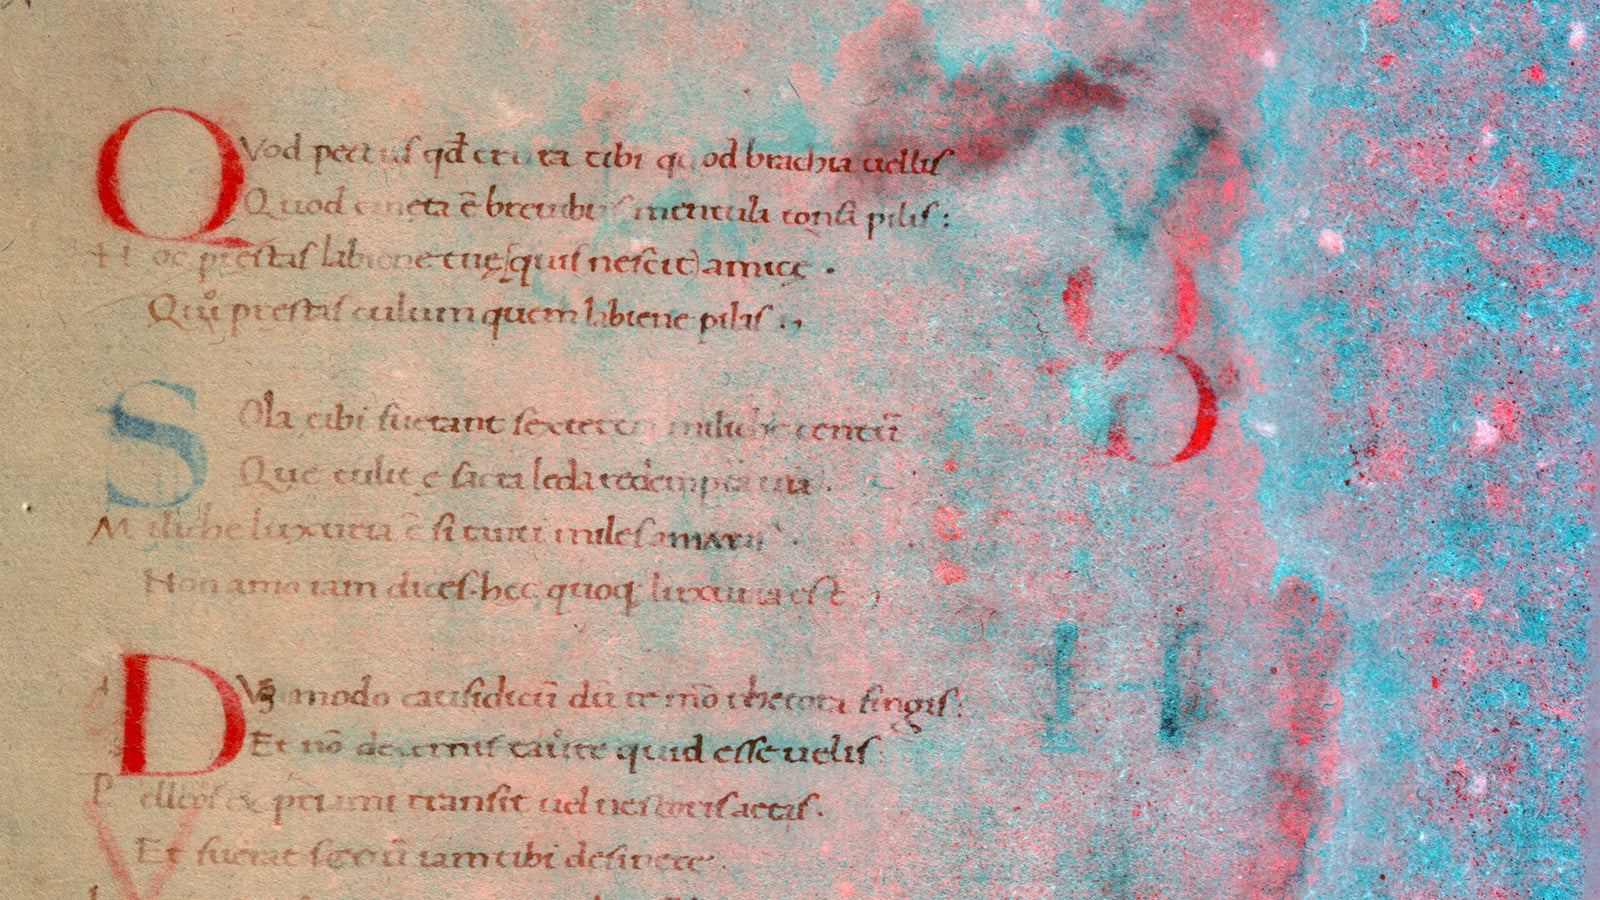 QVod pectus qđ crura tibi quod brachia uellis
Quod cincta ē breuibus mentula tonsa pilis:
Hoc prestas labiene tuę (quis nescit) amicę.
Qui prestas culum quem labiene pilas.,
SOla tibi fuerant sextertia miliche centū
Que tulit e sacra leda redempta uia.
Miliche luxuria ē si tanti miles amares.
Non amo iam dices. hec quoq luxuria est
DVm modo causidicū dū te mō rhetora fingis:
Et nō decernis taure quid esse uelis
Peleos & priami transit uel nestoris aetas.
Et fuerat serū iam tibi desinere.
V
Q
D
H
V